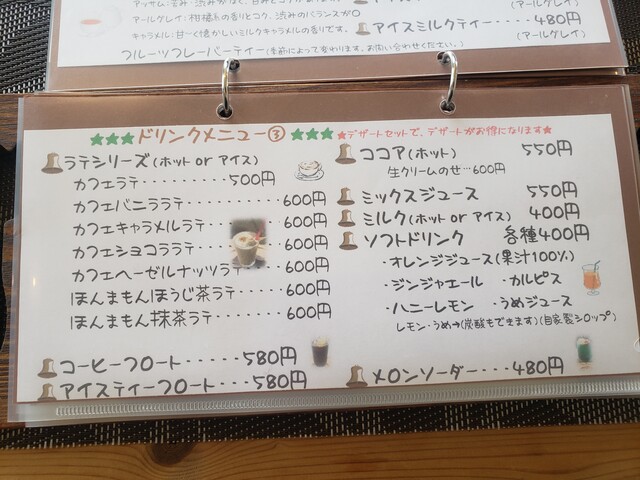 アールグレイ:柑橘系の香りとコク、渋みのバランスが◎
キャラメル:甘~く懐かしいミルクキャラメルの香りです。
フルーツフレーバーティー(季節によって変わります。お問い合わせください。)
(アールグレイ)
アイスミルクティー・・・・480円
(アールグレイ)
★★★ドリンクメニュー③★★★
★デザートセットで、デザートがお得になります★
ラテシリーズ(ホット or アイス)
カフェラテ・・・・・・・・・500円
カフェバニララテ・・・・・・・・・600円
カフェキャラメルラテ・・・600円
カフェショコララテ・・・600円
カフェヘーゼルナッツラテ・・・・600円
ほんまもんほうじ茶ラテ・・・・・600円
ほんまもん抹茶ラテ・・・・・・・600円
コーヒーフロート・・・・・・580円
アイスティーフロート・・・・580円
ココア(ホット) 550円
生クリームのせ…600円
ミックスジュース 550円
ミルク(ホット or アイス) 400円
ソフトドリンク 各種400円
・オレンジジュース(果汁100%)
・ジンジャエール ・カルピス
・ハニーレモン ・うめジュース
レモン・うめ→(炭酸もできます)(自家製シロップ)
メロンソーダー・・・480円